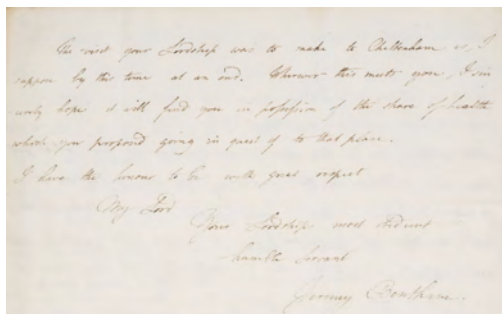 The visit your Lordship was to make to Cheltenham is, I
suppose by this time at an end. Wherever this meets you, I sin
cerely hope it will find you in possession of the share of health
which you proposed going in quest of to that place.
I have the honour to be with great respect
My Lord
Your Lordships most obedient
humble Servant
Jeremy Bentham.